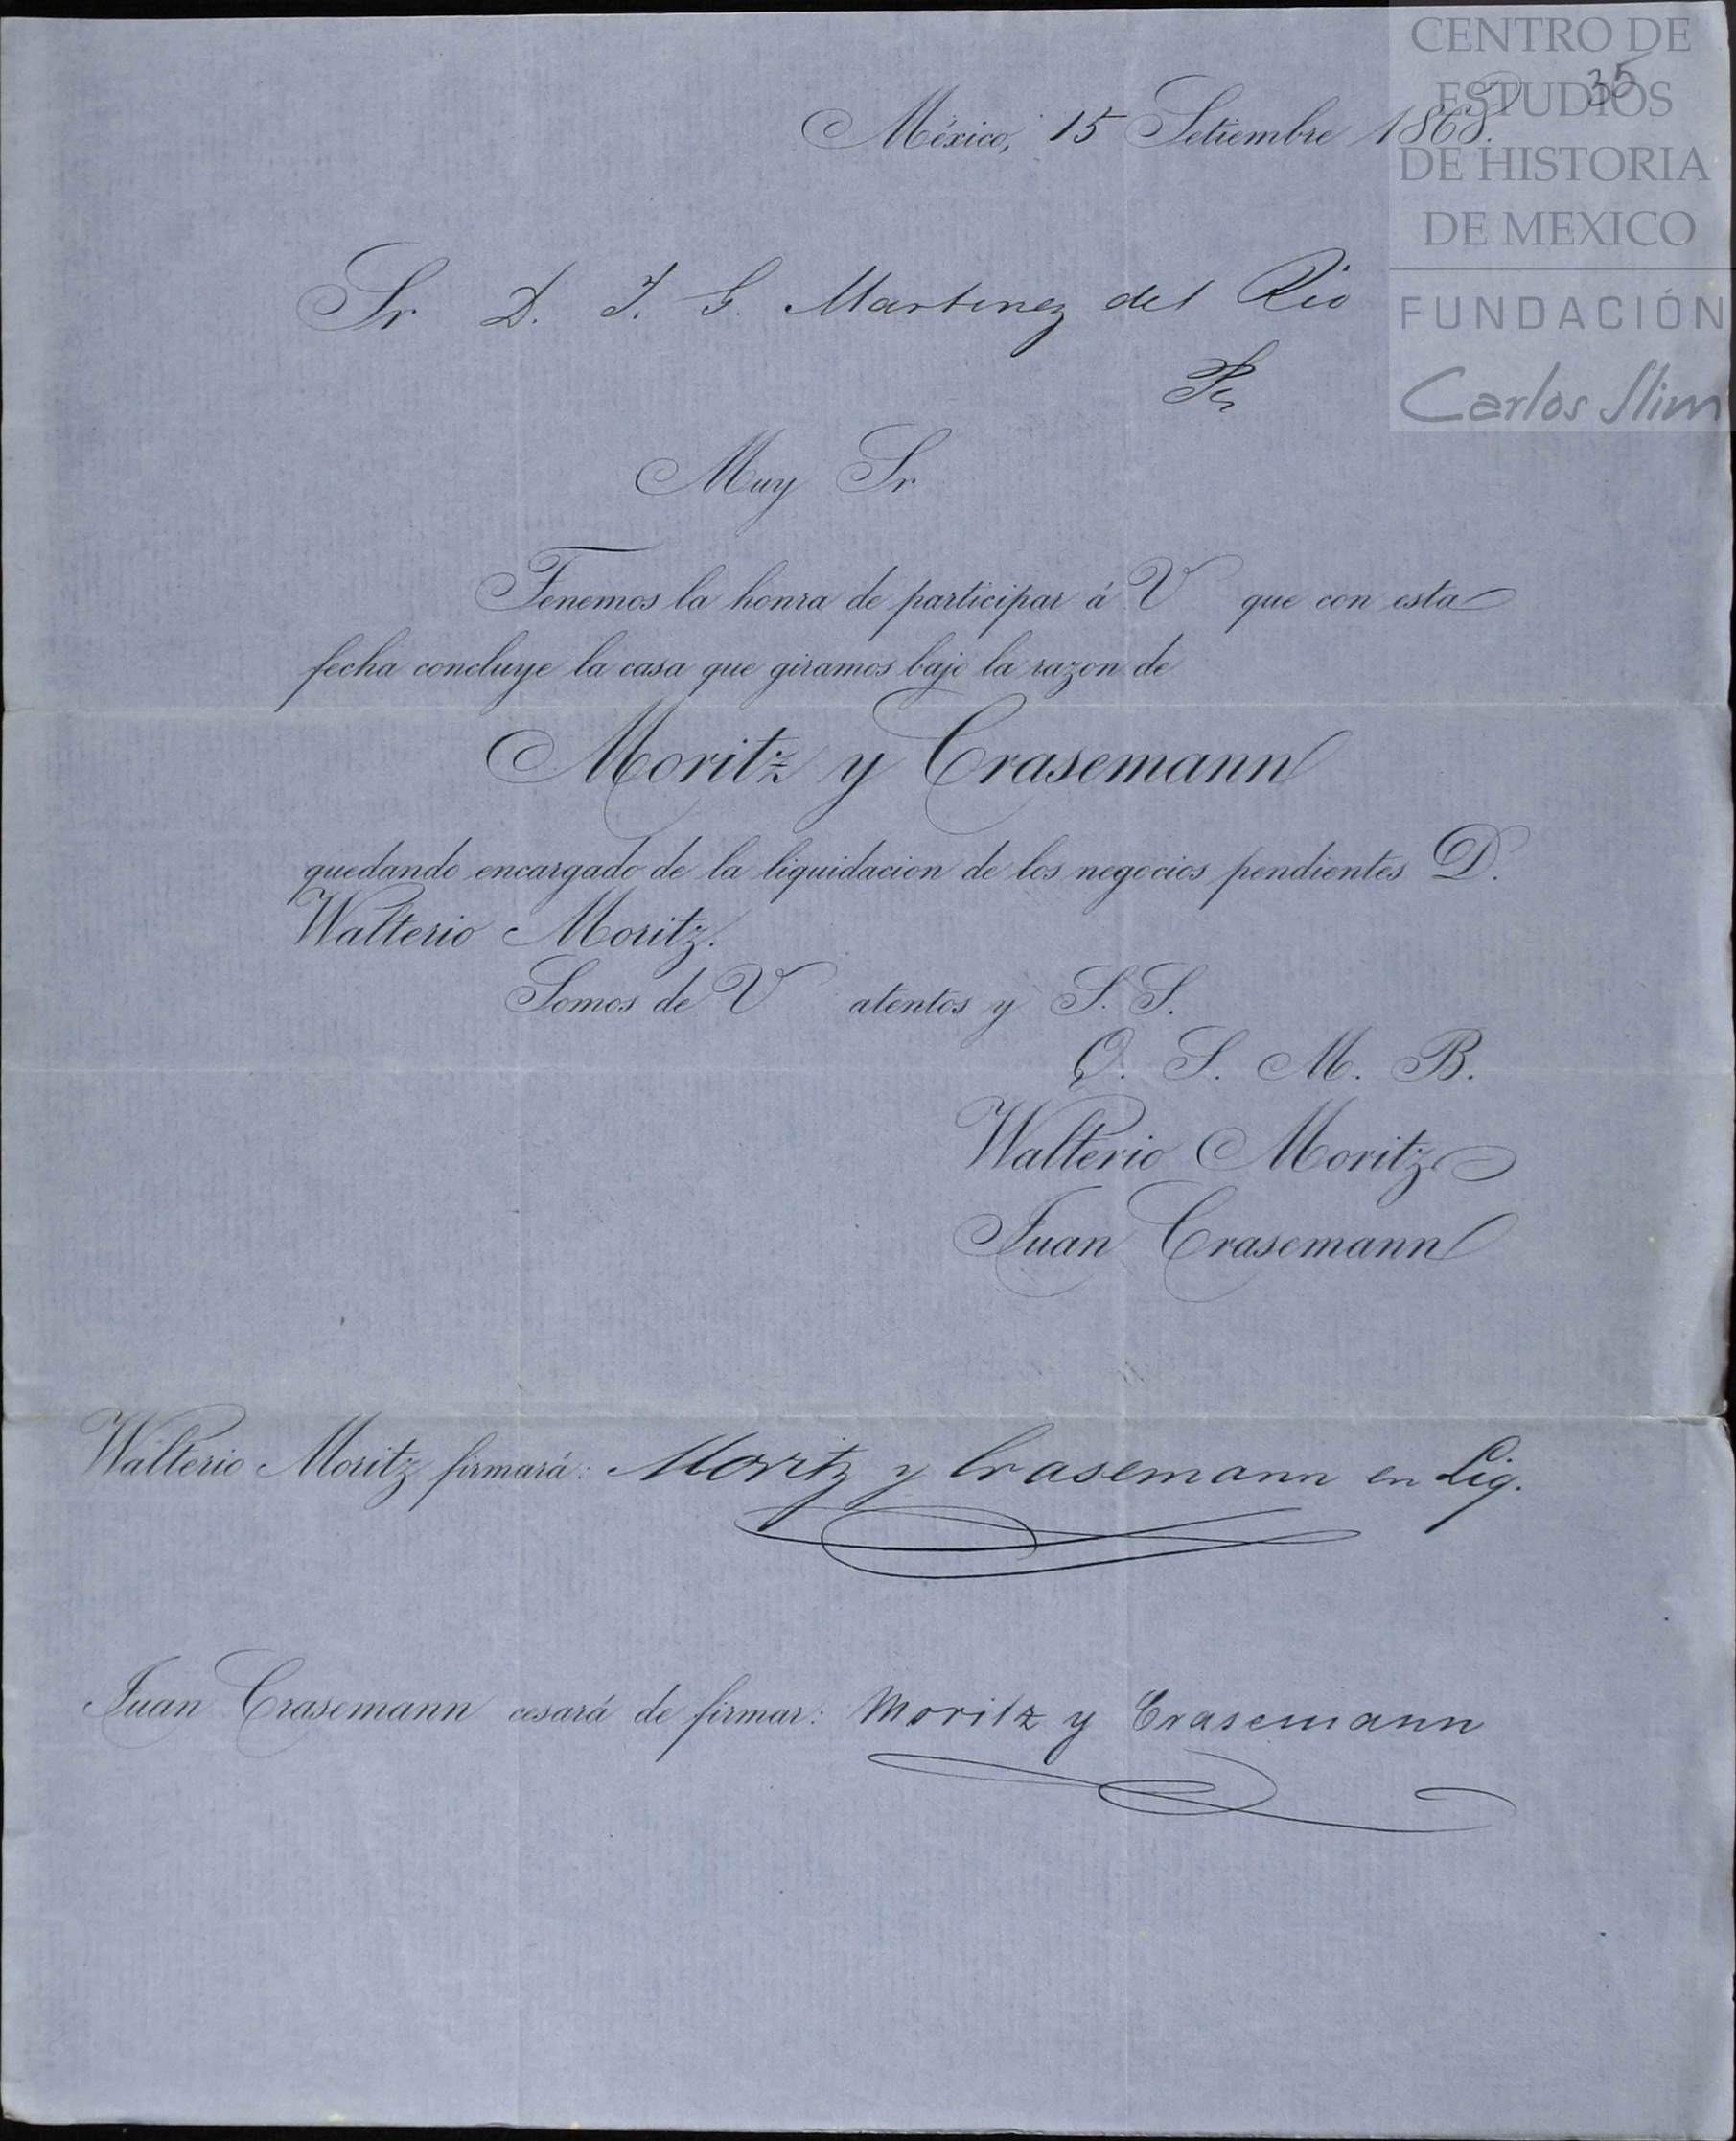 CENTRO DE
ESTUDIOS
DE HISTORIA
DE MEXICO
FUNDACIÓN
Carlos Slim
35
México, 15 Setiembre 1868.
Sr D. J. G. Martinez del Rio
Muy Sr
Tenemos la honra de participar á V que con esta
fecha concluye la casa que giramos bajo la razon de
Moritz y Crasemann
quedando encargado de la liquidacion de los negocios pendientes D.
Walterio Moritz.
Somos de V atentos y S. S.
Q. S. M. B.
Walterio Moritz
Juan Crasemann
Walterio Moritz firmará: Moritz y Crasemann en Liq.
Juan Crasemann cesará de firmar: Moritz y Crasemann